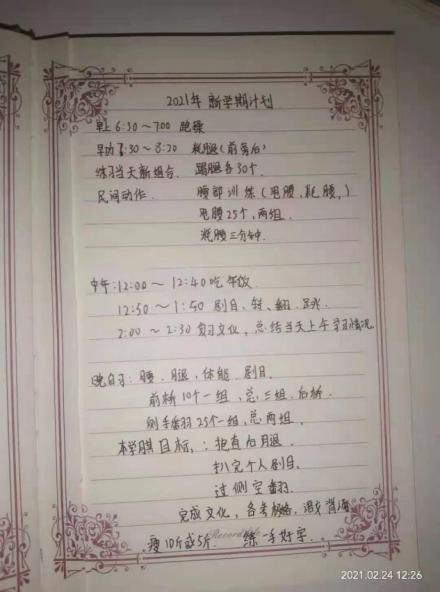 2021年 新学期计划
早上 6:30～7:00 跑操
早功 7:30～8:20 耗腿(前旁后)
练习当天新组合 踢腿各30个
民间动作 腰部训练(甩腰,耗腰,)
甩腰25个,两组.
耗腰三分钟.
中午:12:00～12:40吃午饭
12:50～1:50 剧目、转、翻、跳.
2:00～2:30 复习文化,总结当天上午学习情况
晚自习: 腰、腿、体能、剧目.
前桥10个一组,总三组.后桥.
侧手翻25个一组,总两组.
本学期目标,: 抱直后腿.
扒完个人剧目.
过侧空翻.
完成文化,备考
瘦10斤或5斤. 练一手好字.
Record life
2021.02.24 12:26